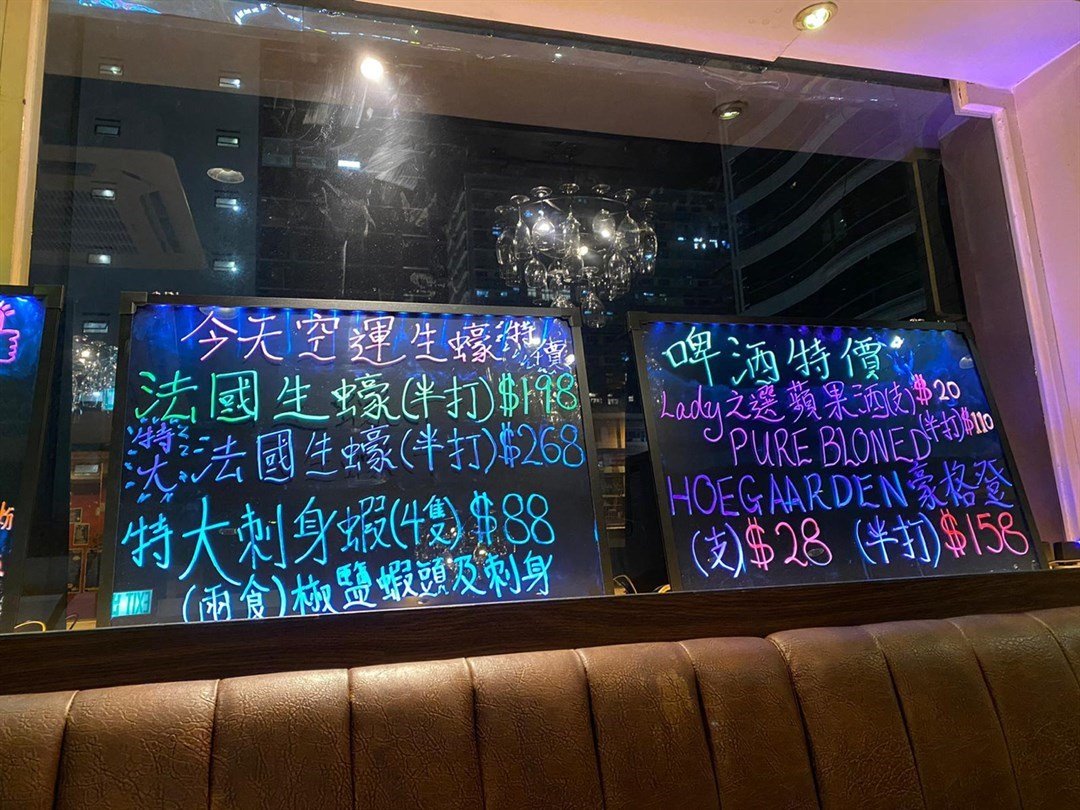 今天空運生蠔特價
法國生蠔(半打)$198
特大法國生蠔(半打)$268
特大刺身蝦(4隻)$88
(兩食)椒鹽蝦頭及刺身
EXIT
啤酒特價
Lady之選蘋果酒(支)$20
PURE BLONED(半打)$110
HOEGAARDEN豪格登
(支)$28 (半打)$158